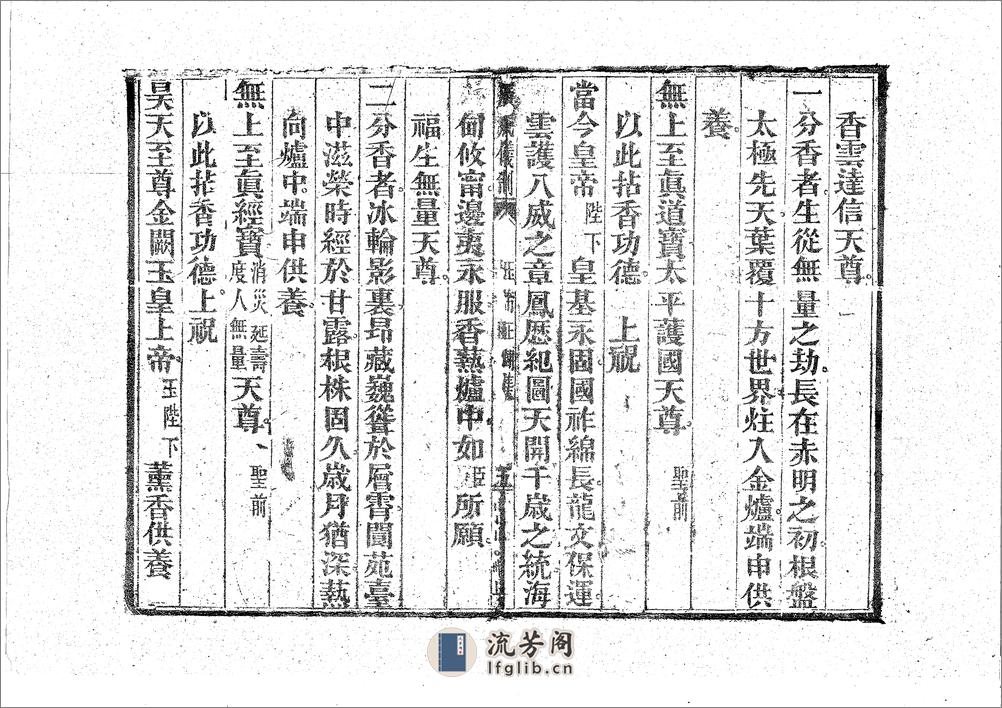 香雲達信天尊
一分香者生從無量之劫長在赤明之初根盤
太極先天葉覆十方世界炷入金爐端申供
養
無上至眞道寶太平護國天尊 聖前
以此拈香功德 上祝
當今皇帝陛下 皇基永固國祚綿長龍文保運
雲護八威之章鳳歷紀圖天開千歲之統海
甸攸甯邊夷永服香爇爐中如 所願
福生無量天尊
二分香者冰輪影裏昂藏巍聳於層霄閬苑臺
中滋榮時經於甘露根株固久歲月猶深爇
向爐中端申供養
無上至眞經寶消災延壽度人無量天尊 聖前
以此拈香功德上祝
昊天至尊金闕玉皇上帝玉陛下 薰香供養
流芳阁
lfglib.cn